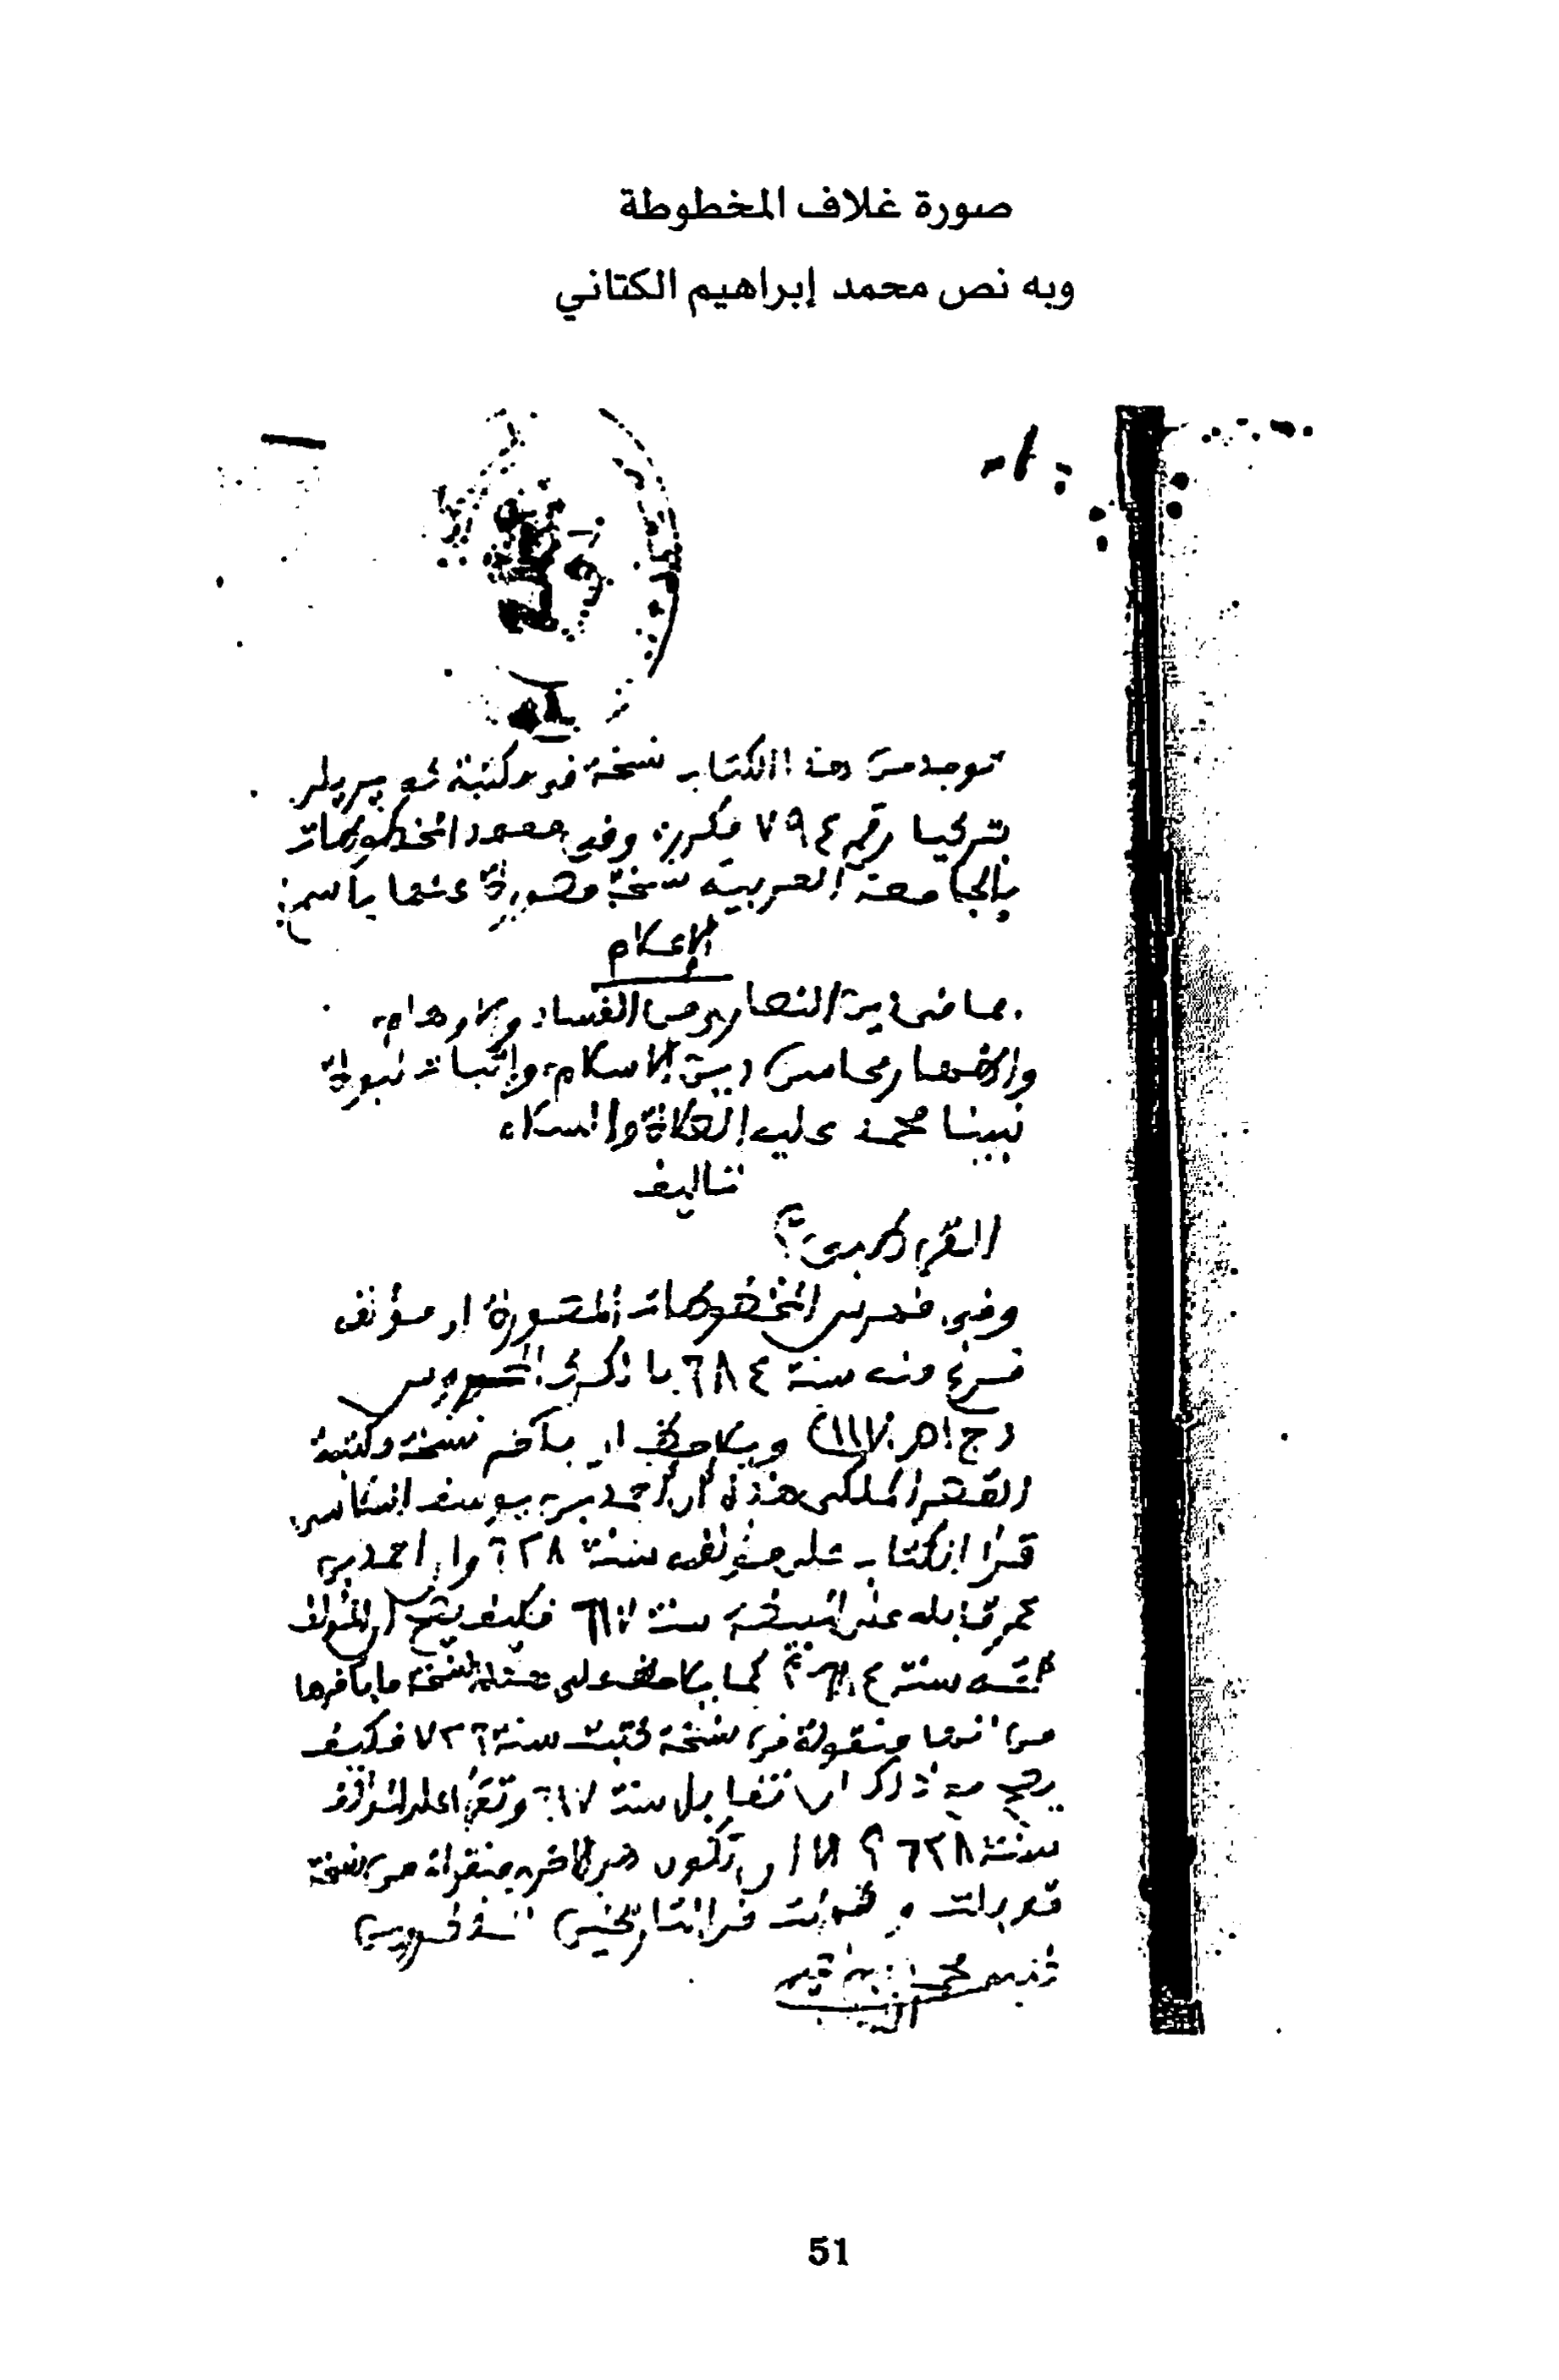 صورة غلاف المخطوطة
وبه نص محمد إبراهيم الكتاني
توجد من هذا الكتاب نسخة في مكتبة كوبريلي
بتركيا رقم ٧٩٤ مكررة وفي معهد المخطوطات
بالجامعة العربية نسخة مصورة عنها باسم:
الإعلام
بما في دين النصارى من الفساد والأوهام
وإظهار محاسن دين الإسلام وإثبات نبوة
نبينا محمد عليه الصلاة والسلام
تأليف
القرطبي؟
وفي فهرس المخطوطات المصورة أن مؤلفه
فرغ منه سنة ٦٨٤
(ج ١ ص ١١٧) ويلاحظ أن بآخر نسخة مكتبة
القصر الملكي هذه أن أحمد بن يوسف
قرأ الكتاب على مؤلفه سنة ٦٢٨ وأن أحمد بن
عمر قابله على نسخة سنة ٦١٧ فكيف يصح أن المؤلف
كتبه سنة ٦٨٤؟ كما يلاحظ على هذه النسخة ما بآخرها
من أنها منقولة من نسخة كتبت سنة ٧٢٦ فكيف
يصح مع ذلك أن تقابل سنة ٦١٧ وتقرأ على المؤلف
سنة ٦٢٨؟ إلا أن تكون هي الأخرى منقولة من نسخة
قوبلت وقرئت في التاريخين المذكورين
محمد إبراهيم
الكتاني
51